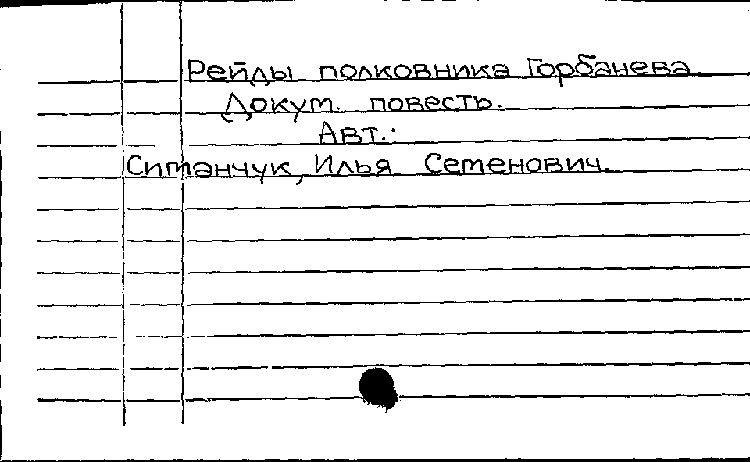 Рейды полковника Горбанева
Докум. повесть.
Авт.:
Ситанчук, Илья Семенович.